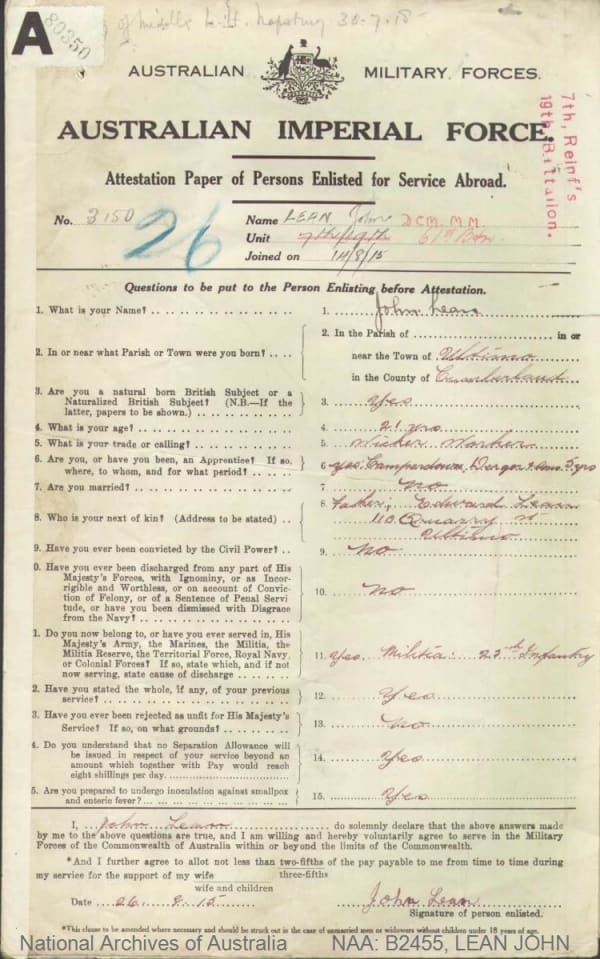 A
80350
30-7-15
AUSTRALIAN MILITARY FORCES.
AUSTRALIAN IMPERIAL FORCE.
7th, Reinf's
19th, Battalion.
Attestation Paper of Persons Enlisted for Service Abroad.
No. 3150
26
Name LEAN John D.C.M. M.M.
Unit 7th/19th 61st Bn
Joined on 14/8/15
Questions to be put to the Person Enlisting before Attestation.
1. What is your Name? 1. John Lean
2. In or near what Parish or Town were you born? 2. In the Parish of in or
near the Town of Ultimo
in the County of Cumberland
3. Are you a natural born British Subject or a
Naturalized British Subject? (N.B.—If the
latter, papers to be shown.) 3. Yes
4. What is your age? 4. 21 yrs
5. What is your trade or calling? 5. Wicker Worker
6. Are you, or have you been, an Apprentice? If so,
where, to whom, and for what period? 6 Yes. Camperdown, 5 yrs
7. Are you married? 7 No
8. Who is your next of kin? (Address to be stated) 8 Father, Edward Lean
110 Quarry st
Ultimo
9. Have you ever been convicted by the Civil Power? 9. No
0. Have you ever been discharged from any part of His
Majesty's Forces, with Ignominy, or as Incor-
rigible and Worthless, or on account of Convic-
tion of Felony, or of a Sentence of Penal Servi
tude, or have you been dismissed with Disgrace
from the Navy? 10. No
1. Do you now belong to, or have you ever served in, His
Majesty's Army, the Marines, the Militia, the
Militia Reserve, the Territorial Force, Royal Navy,
or Colonial Forces? If so, state which, and if not
now serving, state cause of discharge 11 Yes. Militia. 25th Infantry
2. Have you stated the whole, if any, of your previous
service? 12. Yes
3. Have you ever been rejected as unfit for His Majesty's
Service? If so, on what grounds? 13. No
4. Do you understand that no Separation Allowance will
be issued in respect of your service beyond an
amount which together with Pay would reach
eight shillings per day. 14. Yes
5. Are you prepared to undergo inoculation against smallpox
and enteric fever? 15. Yes
I, John Lean do solemnly declare that the above answers made
by me to the above questions are true, and I am willing and hereby voluntarily agree to serve in the Military
Forces of the Commonwealth of Australia within or beyond the limits of the Commonwealth.
*And I further agree to allot not less than two-fifths of the pay payable to me from time to time during
three-fifths
my service for the support of my wife
wife and children
Date 26. 8. 15 John Lean
Signature of person enlisted.
*This clause to be amended where necessary and should be struck out in the case of unmarried men or widowers without children under 18 years of age.
National Archives of Australia NAA: B2455, LEAN JOHN